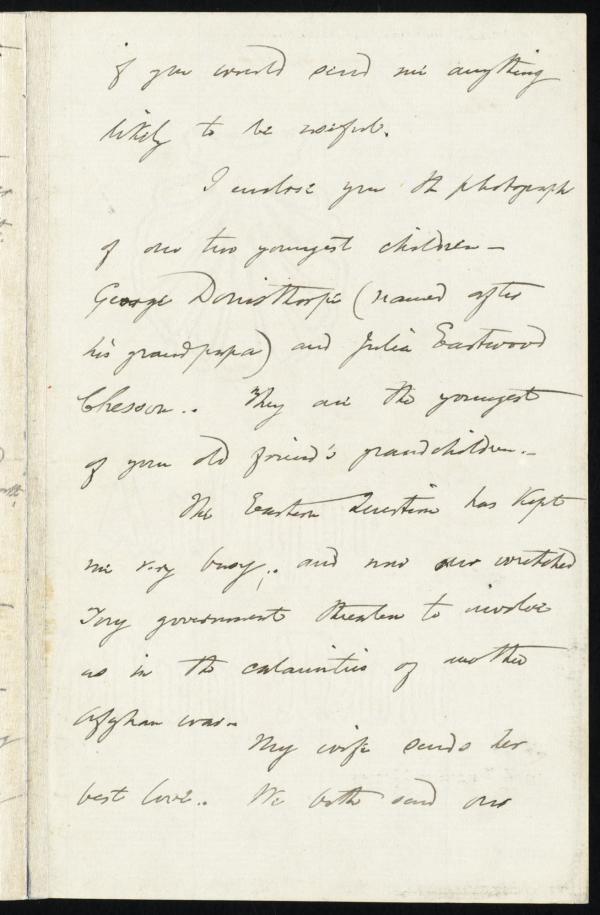 if you would send me anything
likely to be useful.
I enclose you the photograph
of our two youngest children —
George Donisthorpe (named after
his grandpapa) and Julia Eastwood
Chesson.. They are the youngest
of your old friend's grandchildren. —
The Eastern Question has kept
me very busy,.. and now our wretched
Tory government threaten to involve
us in the calamities of another
Afghan war —
My wife sends her
best love.. We both send our